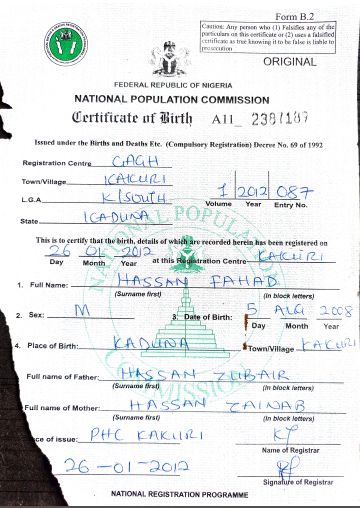 Form B.2
Caution: Any person who (1) Falsifies any of the
particulars on this certificate or (2) uses a falsified
certificate as true knowing it to be false is liable to
prosecution
ORIGINAL
FEDERAL REPUBLIC OF NIGERIA
NATIONAL POPULATION COMMISSION
Certificate of Birth A11_
Issued under the Births and Deaths Etc. (Compulsory Registration) Decree No. 69 of 1992
Registration Centre GAGH
Town/Village KAKURI
L.G.A K/SOUTH 1 2012 087
Volume Year Entry No.
State KADUNA
This is to certify that the birth, details of which are recorded herein has been registered on
26 01 2012 at this Registration Centre KAKURI
Day Month Year
1. Full Name: HASSAN FAHAD
(Surname first) (In block letters)
2. Sex: M 3. Date of Birth: 5 AUG 2008
Day Month Year
4. Place of Birth: KADUNA Town/Village KAKURI
Full name of Father: HASSAN ZUBAIR
(Surname first) (In block letters)
Full name of Mother: HASSAN ZAINAB
(Surname first) (In block letters)
of issue: PHC KAKURI
Name of Registrar
26-01-2012
Signature of Registrar
NATIONAL REGISTRATION PROGRAMME
NATIONAL POPULATION COMMISSION